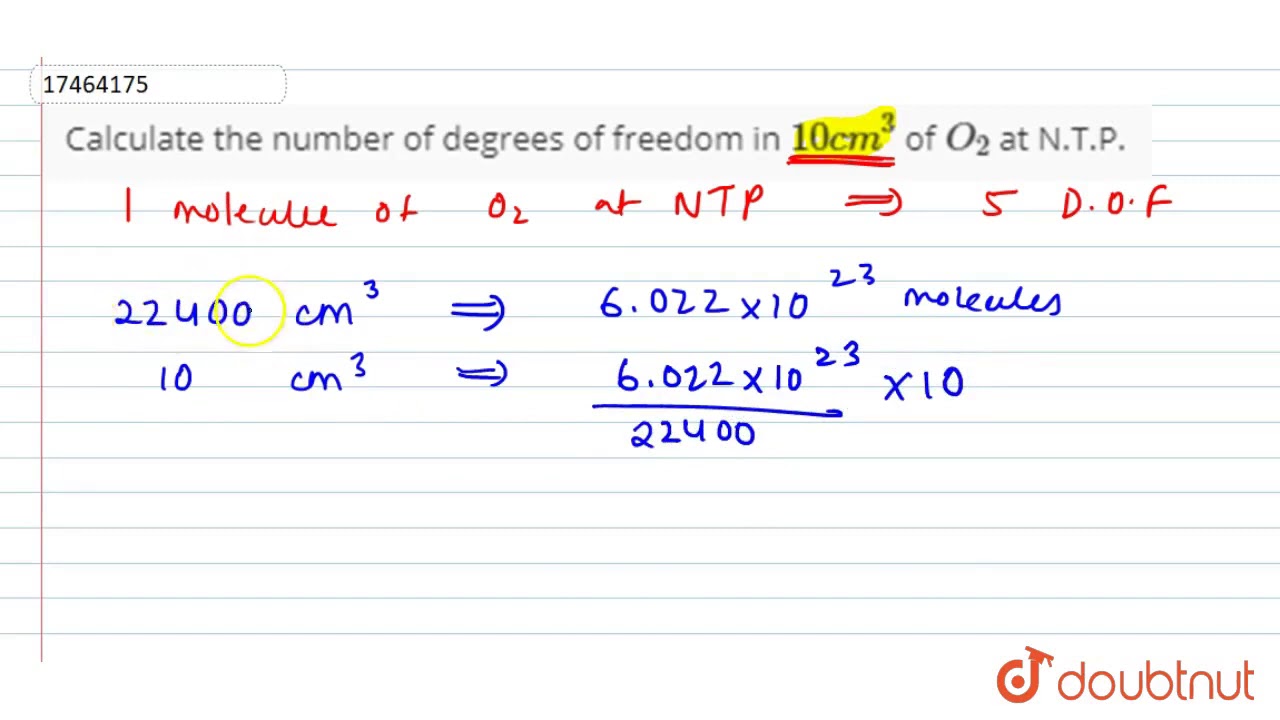 17464175
Calculate the number of degrees of freedom in 10cm³ of O₂ at N.T.P.
1 molecule of O₂ at NTP ⟹ 5 D.O.F
22400 cm³ ⟹ 6.022 × 10²³ molecules
10 cm³ ⟹ 6.022 × 10²³ × 10
22400
doubtnut